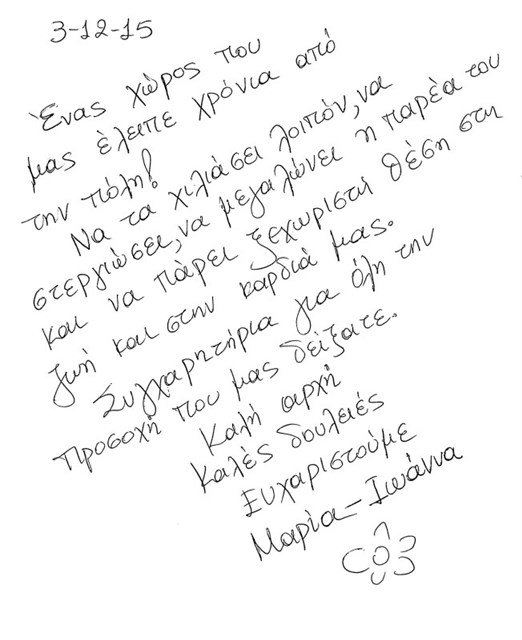 3-12-15
Ένας χώρος που
μας έλειπε χρόνια από
την πόλη!
Να τα χιλιάσει λοιπόν, να
στεργιώσει, να μεγαλώνει η παρέα του
και να πάρει ξεχωριστή θέση στη
ζωή και στην καρδιά μας.
Συγχαρητήρια για όλη την
προσοχή που μας δείξατε.
Καλή αρχή
Καλές δουλειές
Ευχαριστούμε
Μαρία-Ιωάννα